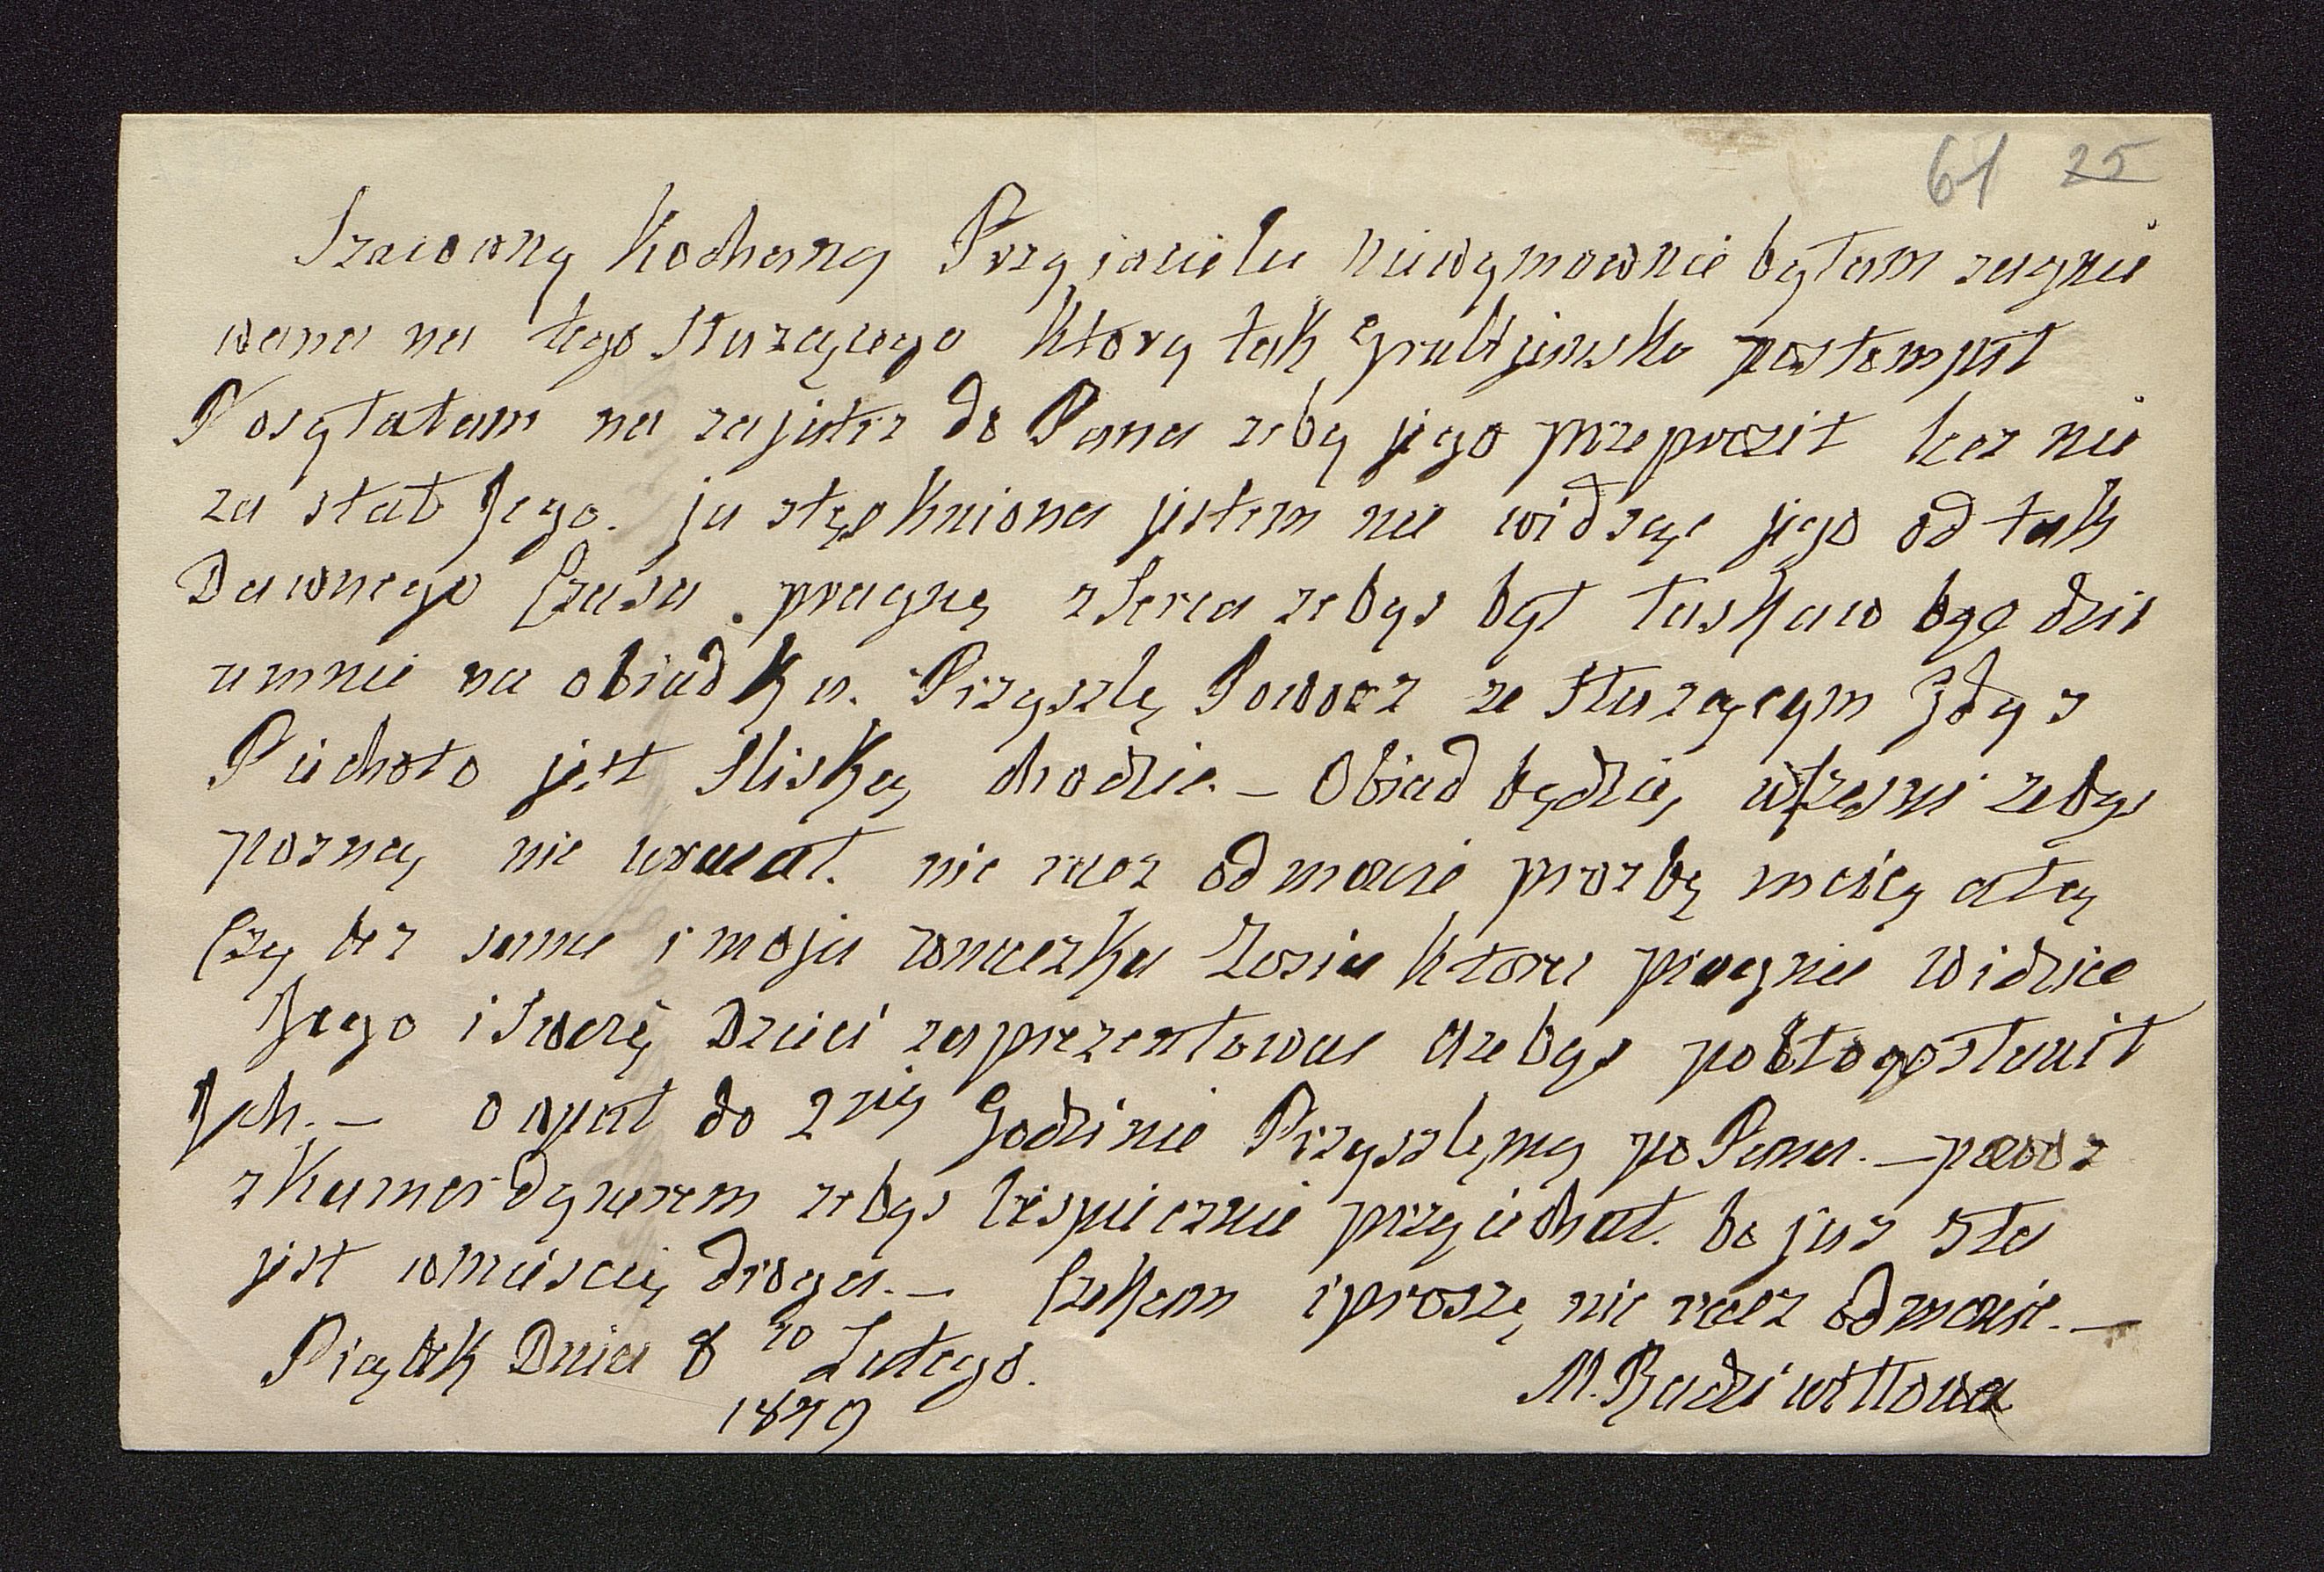 61 25
Szaiowny Kochany Przyjacielu niewymownie byłam zagnie
wana na tego Służącego który tak Grubijansko postompił
Posyłałam na zajutrz do Pana zeby jego przeprosił lecz nie
za stał Jego. ja stęskniona jestem nie widząc jego od tak
Dawnego Czasu. pragnę z Serca zebys był łaskaw być dzis
umnie na obiadku. Przyszlę Powoz ze Służącym Gdyz
Piechoto jest Sliską chodzic. – Obiad będzie wczesni zebys
pozną nie wracał. nie racz odmawie prozbę moię
Czy tez sama i moja Zosia ktora pragnie widziec
Jego i Swoię Dzieci zaprezentowac azebys pobłogosławił
Jch. – o wpół do 2giy Godzinie Przyszlęmy po Pana. – powoz
z Kamerdynerem zebys bespiecznie przyiechał. bo juz zła
jest wmiescię droga. – Czekam i proszę nie racz odmawic. –
Piątek Dnia 8go Lutego. M. Radziwiłłowa
1879